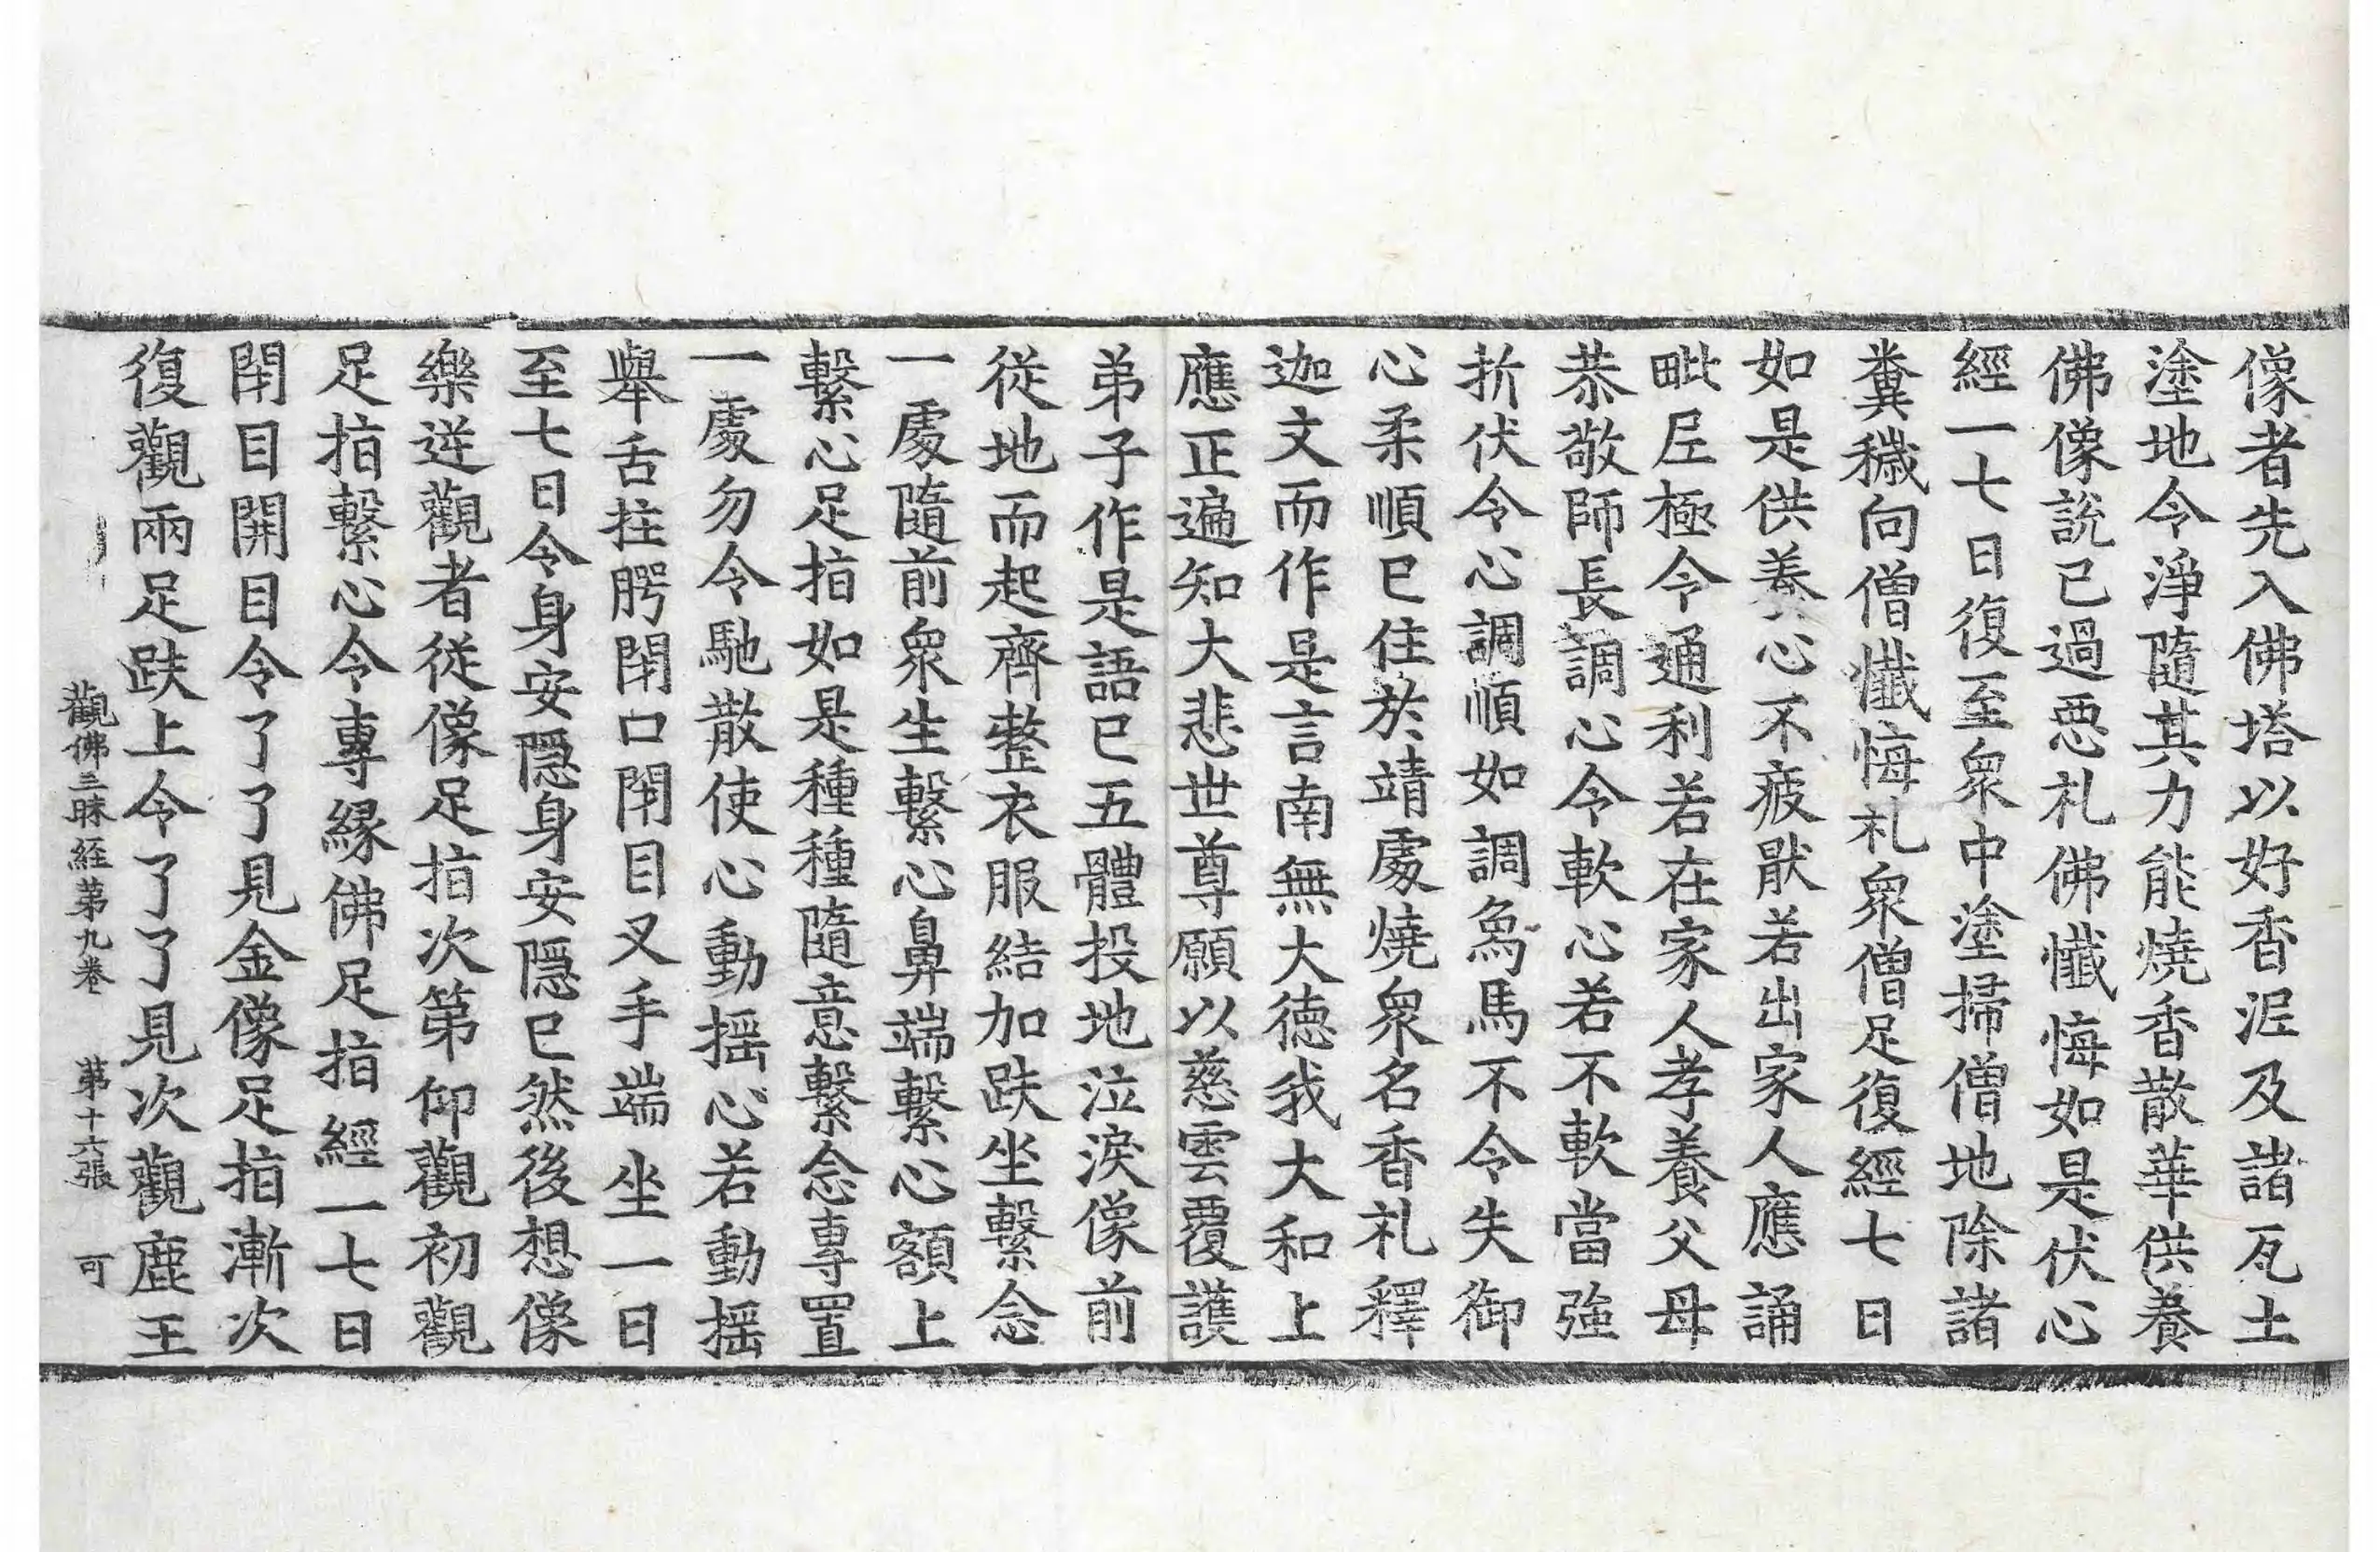 像者先入佛塔以好香泥及諸瓦土
塗地令淨隨其力能燒香散華供養
佛像說已過惡礼佛懺悔如是伏心
經一七日復至衆中塗掃僧地除諸
糞穢向僧懺悔礼衆僧足復經七日
如是供養心不疲厭若出家人應誦
毗尼極令通利若在家人孝養父母
恭敬師長調心令軟心若不軟當強
折伏令心調順如調象馬不令失御
心柔順已住於靖處燒衆名香礼釋
迦文而作是言南無大德我大和上
應正遍知大悲世尊願以慈雲覆護
弟子作是語已五體投地泣淚像前
從地而起齊整衣服結加趺坐繫念
一處隨前衆生繫心鼻端繫心額上
繫心足指如是種種隨意繫念專置
一處勿令馳散使心動揺心若動揺
舉舌拄腭閇口閇目叉手端坐一日
至七日令身安隱身安隱已然後想像
樂逆觀者從像足指次第仰觀初觀
足指繫心令專緣佛足指經一七日
閇目開目令了了見金像足指漸次
復觀兩足趺上令了了見次觀鹿王
觀佛三昧経第九卷 第十六張 可